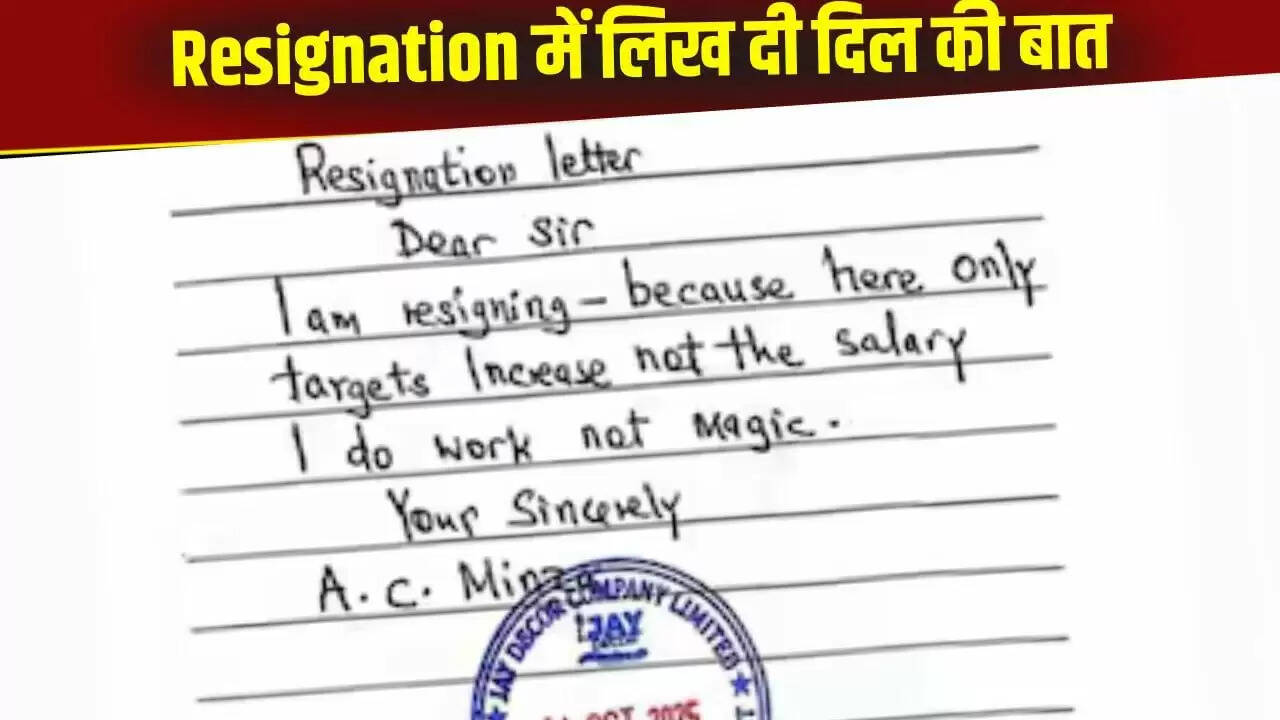 Resignation में लिख दी दिल की बात
Resignation letter
Dear Sir
I am resigning - because here only
targets Increase not the salary
I do work not magic.
Your Sincerely
A. C.
JAY DSCOR COMPANY LIMITED
JAY
OCT 2025